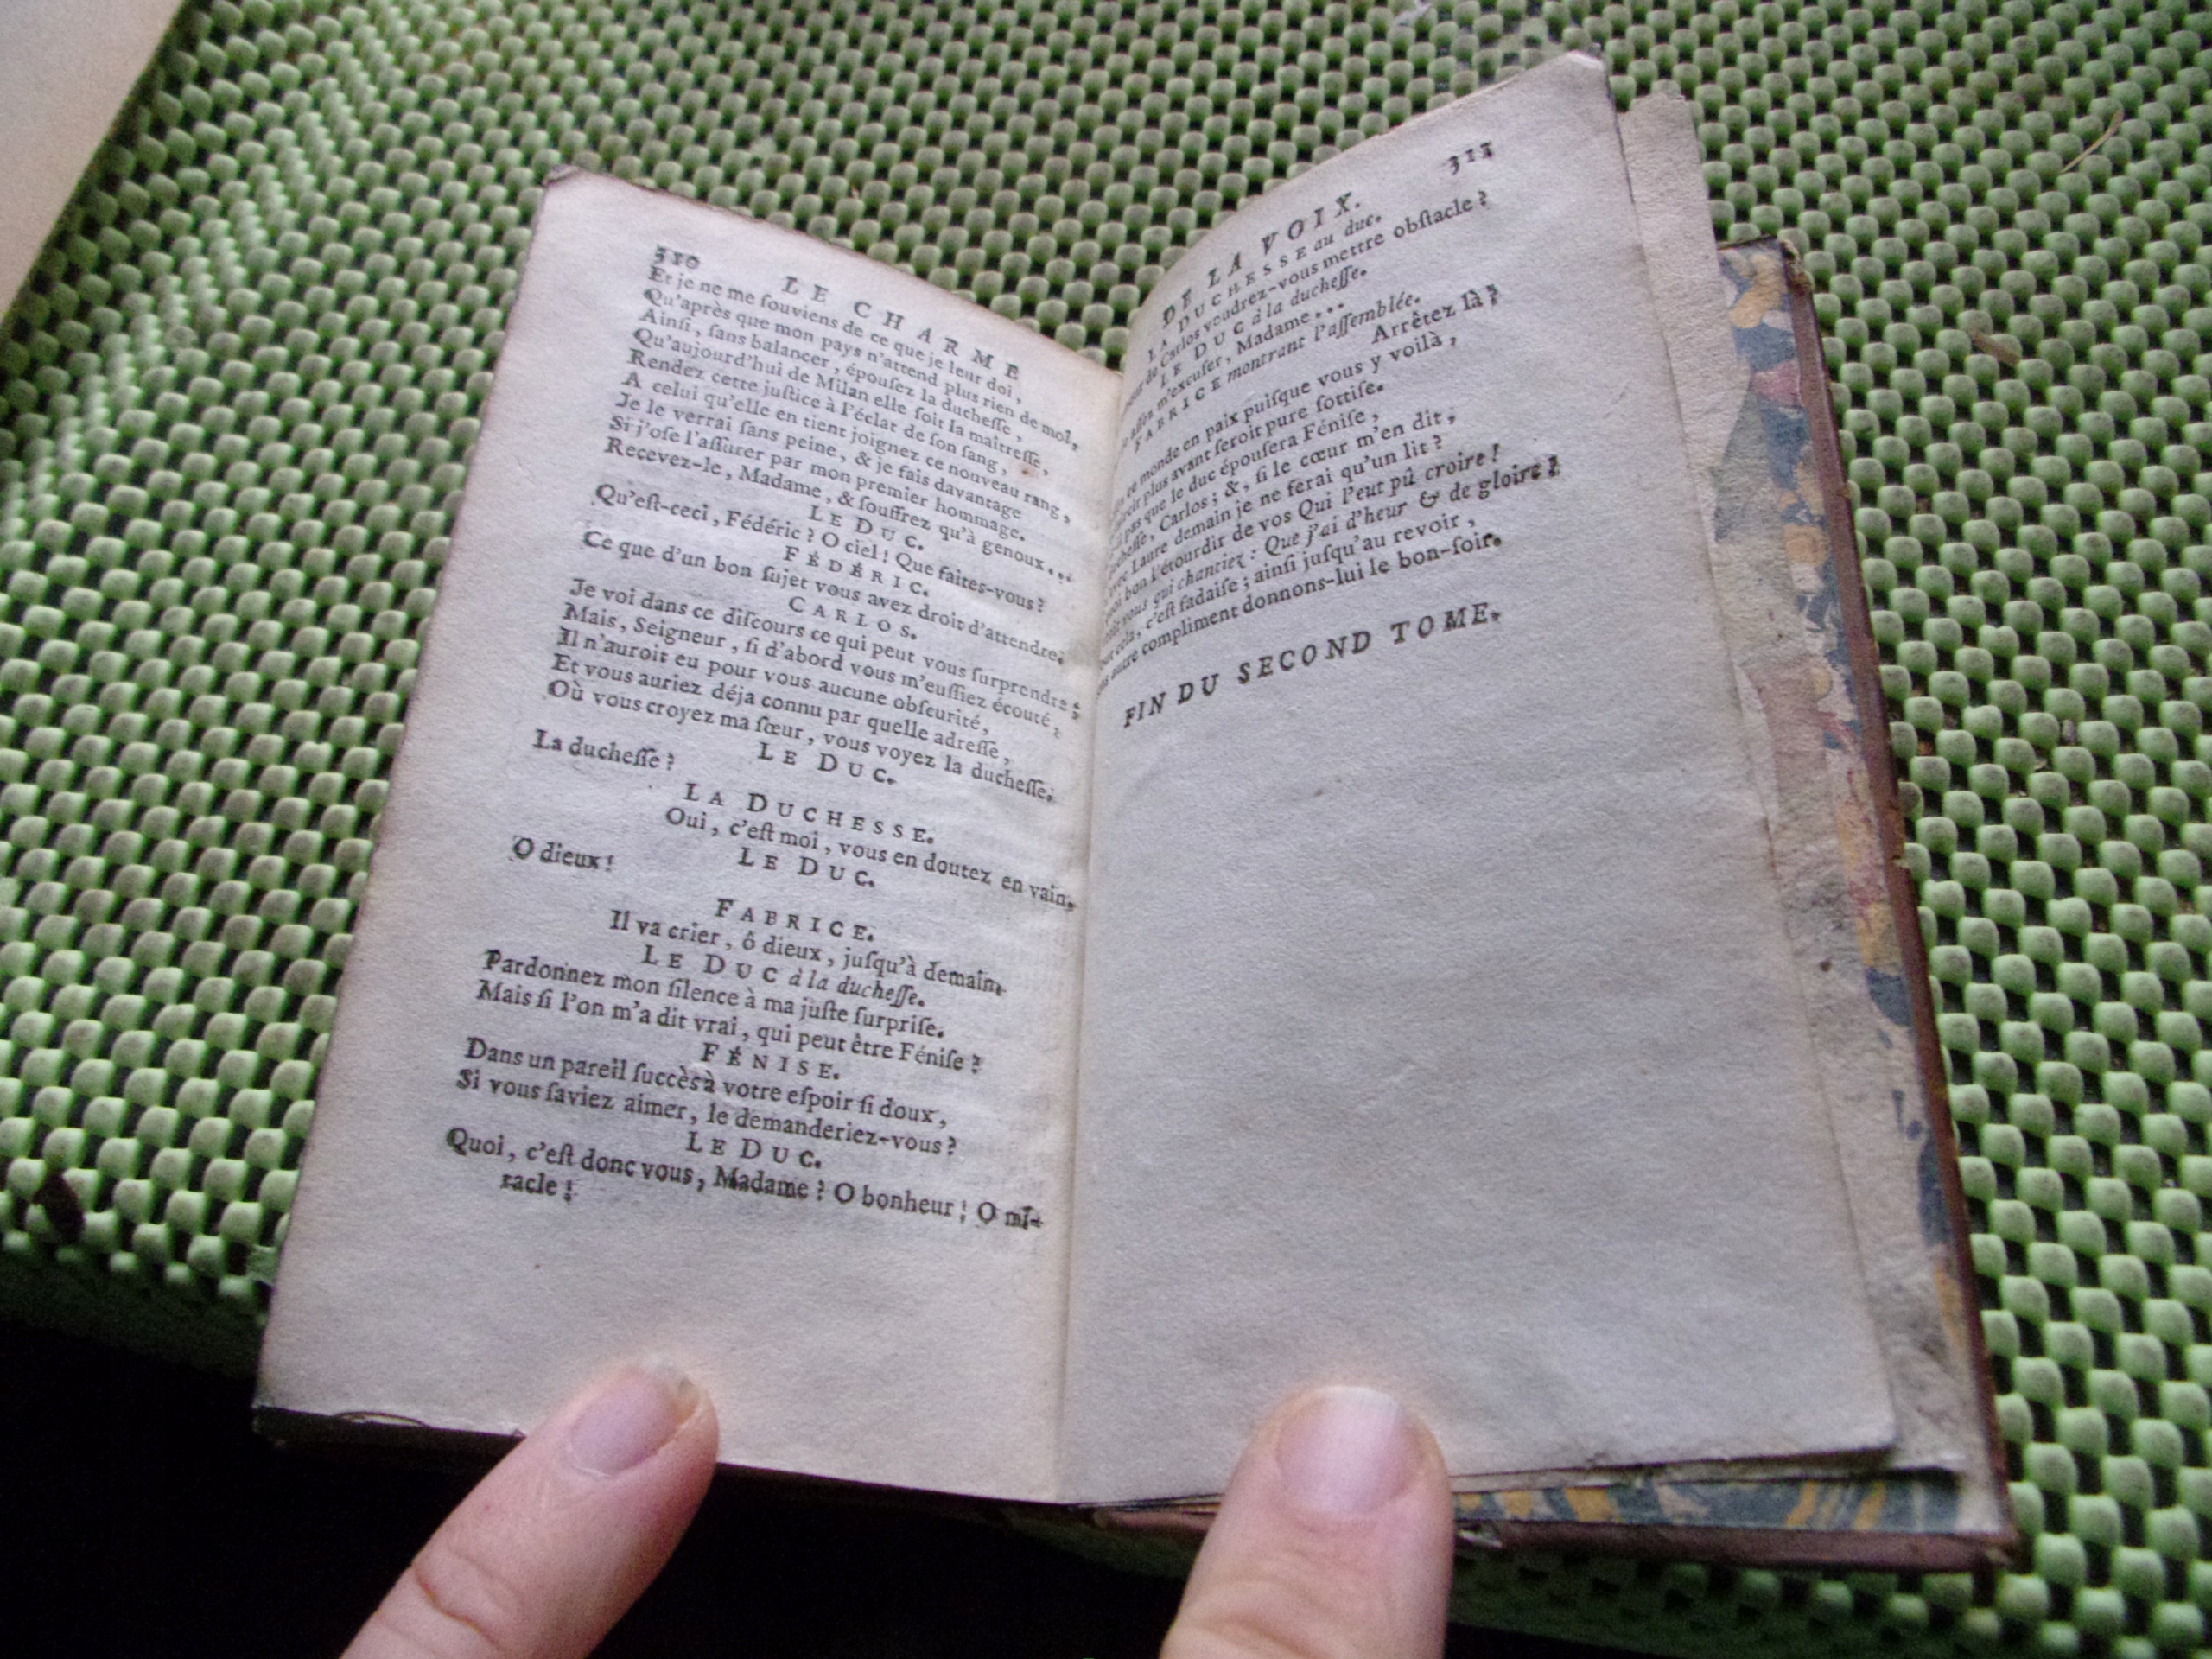 310 LE CHARME
Et je ne me ſouviens de ce que je leur doi,
Qu'après que mon pays n'attend plus rien de moi,
Ainſi, ſans balancer, épouſez la ducheſſe,
Qu'aujourd'hui de Milan elle ſoit la maitreſſe,
Rendez cette juſtice à l'éclat de ſon ſang,
A celui qu'elle en tient joignez ce nouveau rang,
Je le verrai ſans peine, & je fais davantage
Si j'oſe l'aſſurer par mon premier hommage.
Recevez-le, Madame, & ſouffrez qu'à genoux...
LE DUC.
Qu'eſt-ceci, Fédéric? O ciel! Que faites-vous?
FÉDÉRIC.
Ce que d'un bon ſujet vous avez droit d'attendre.
CARLOS.
Je voi dans ce diſcours ce qui peut vous ſurprendre;
Mais, Seigneur, ſi d'abord vous m'euſſiez écouté,
Il n'auroit eu pour vous aucune obſcurité,
Et vous auriez déja connu par quelle adreſſe,
Où vous croyez ma ſœur, vous voyez la ducheſſe.
LE DUC.
La ducheſſe?
LA DUCHESSE.
Oui, c'eſt moi, vous en doutez en vain.
LE DUC.
O dieux!
FABRICE.
Il va crier, ô dieux, juſqu'à demain.
LE DUC à la ducheſſe.
Pardonnez mon ſilence à ma juſte ſurpriſe.
Mais ſi l'on m'a dit vrai, qui peut être Féniſe?
FÉNISE.
Dans un pareil ſuccès à votre eſpoir ſi doux,
Si vous ſaviez aimer, le demanderiez-vous?
LE DUC.
Quoi, c'eſt donc vous, Madame? O bonheur! O mi-
racle!
DE LA VOIX. 311
LA DUCHESSE au duc.
de Carlos voudrez-vous mettre obſtacle?
LE DUC à la ducheſſe.
m'excuſer, Madame...
FABRICE montrant l'aſſemblée.
Arrêtez là;
ce monde en paix puiſque vous y voilà,
plus avant ſeroit pure ſottiſe.
pas que le duc épouſera Féniſe,
Carlos; &, ſi le cœur m'en dit,
Laure demain je ne ferai qu'un lit?
bon l'étourdir de vos Qui l'eut pû croire!
vous qui chantiez: Que j'ai d'heur & de gloire?
cela, c'eſt fadaiſe; ainſi juſqu'au revoir,
autre compliment donnons-lui le bon-ſoir.
FIN DU SECOND TOME.